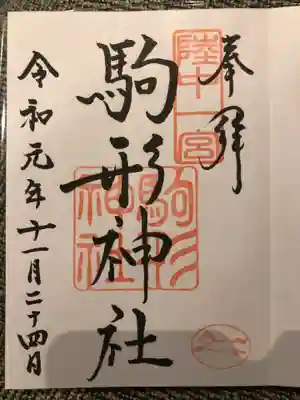 奉拝
陸中一宮
駒形神社
駒形神社
令和元年十一月二十四日